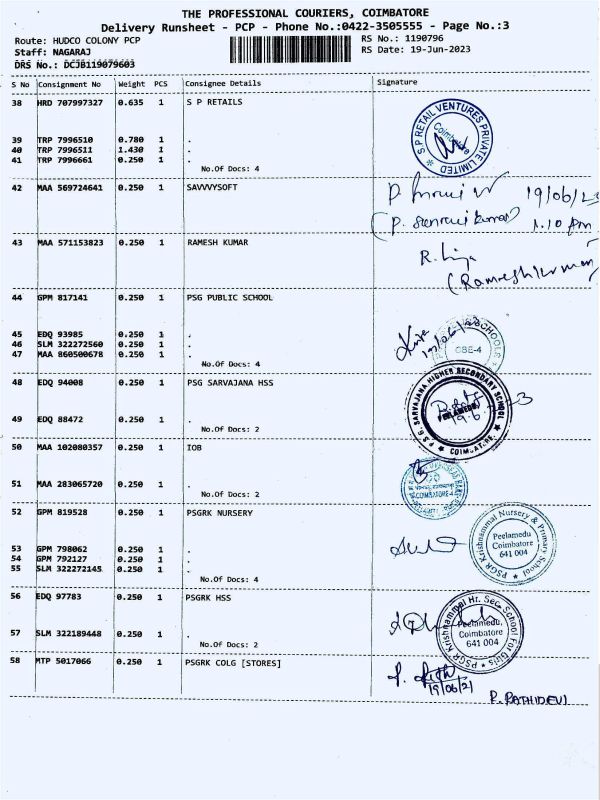 THE PROFESSIONAL COURIERS, COIMBATORE
Delivery Runsheet - PCP - Phone No.:0422-3505555 - Page No.:3
Route: HUDCO COLONY PCP RS No.: 1190796
Staff: NAGARAJ RS Date: 19-Jun-2023
DRS No.: DCJB119079603
S No Consignment No Weight PCS Consignee Details Signature
38 HRD 707997327 0.635 1 S P RETAILS
S.P RETAIL VENTURES PRIVATE LIMITED
Coimbatore
39 TRP 7996510 0.780 1 .
40 TRP 7996511 1.430 1 .
41 TRP 7996661 0.250 1 .
No.Of Docs: 4
42 MAA 569724641 0.250 1 SAVVVYSOFT
19/06/23
1.10 pm
43 MAA 571153823 0.250 1 RAMESH KUMAR
(Rameshkumar)
44 GPM 817141 0.250 1 PSG PUBLIC SCHOOL
45 EDQ 93985 0.250 1 .
46 SLM 322272560 0.250 1 .
47 MAA 860500678 0.250 1 .
No.Of Docs: 4
CBE-4
48 EDQ 94008 0.250 1 PSG SARVAJANA HSS
P.S.G. SARVAJANA HIGHER SECONDARY SCHOOL
PEELAMEDU
COIMBATORE.
49 EDQ 88472 0.250 1 .
No.Of Docs: 2
50 MAA 102080357 0.250 1 IOB
51 MAA 283065720 0.250 1 .
No.Of Docs: 2
OVERSEAS BANK
COIMBATORE-4
52 GPM 819528 0.250 1 PSGRK NURSERY
PSGR Krishnammal Nursery & Primary School
Peelamedu
Coimbatore
641 004
53 GPM 798062 0.250 1 .
54 GPM 792127 0.250 1 .
55 SLM 322272145 0.250 1 .
No.Of Docs: 4
56 EDQ 97783 0.250 1 PSGRK HSS
PSGR Krishnammal Hr. Sec. School For Girls
Peelamedu,
Coimbatore
641 004
57 SLM 322189448 0.250 1 .
No.Of Docs: 2
58 MTP 5017066 0.250 1 PSGRK COLG [STORES]
19/06/21
P. RATHIDEVI